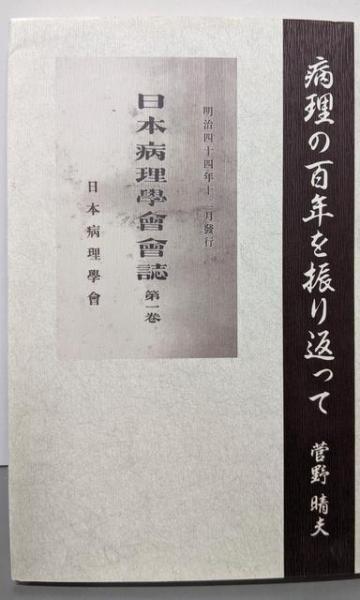 病理の百年を振り返って
菅野晴夫
明治四十四年十二月發行
日本病理學會會誌 第一卷
日本病理學會